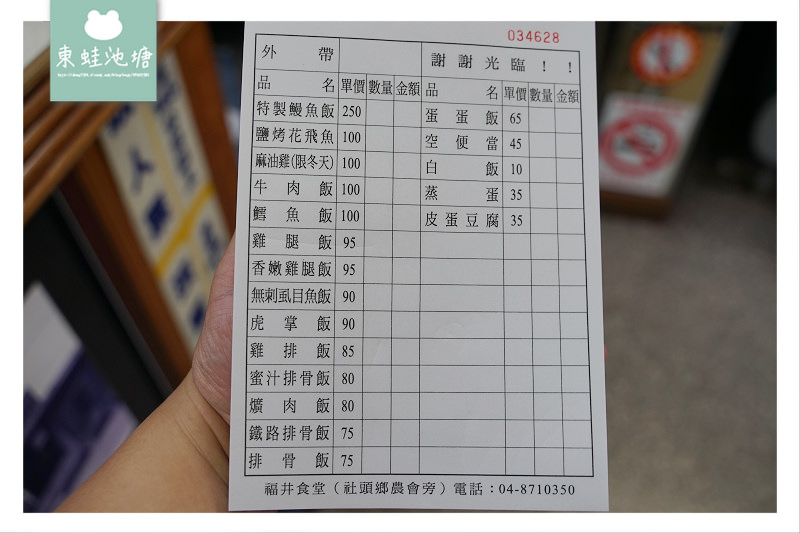 東蛙池塘
034628
外帶
謝謝光臨！！
品名 單價 數量 金額 品名 單價 數量 金額
特製鰻魚飯 250 蛋蛋飯 65
鹽烤花飛魚 100 空便當 45
麻油雞(限冬天) 100 白飯 10
牛肉飯 100 蒸蛋 35
鱈魚飯 100 皮蛋豆腐 35
雞腿飯 95
香嫩雞腿飯 95
無刺虱目魚飯 90
虎掌飯 90
雞排飯 85
蜜汁排骨飯 80
爌肉飯 80
鐵路排骨飯 75
排骨飯 75
福井食堂（社頭鄉農會旁）電話：04-8710350